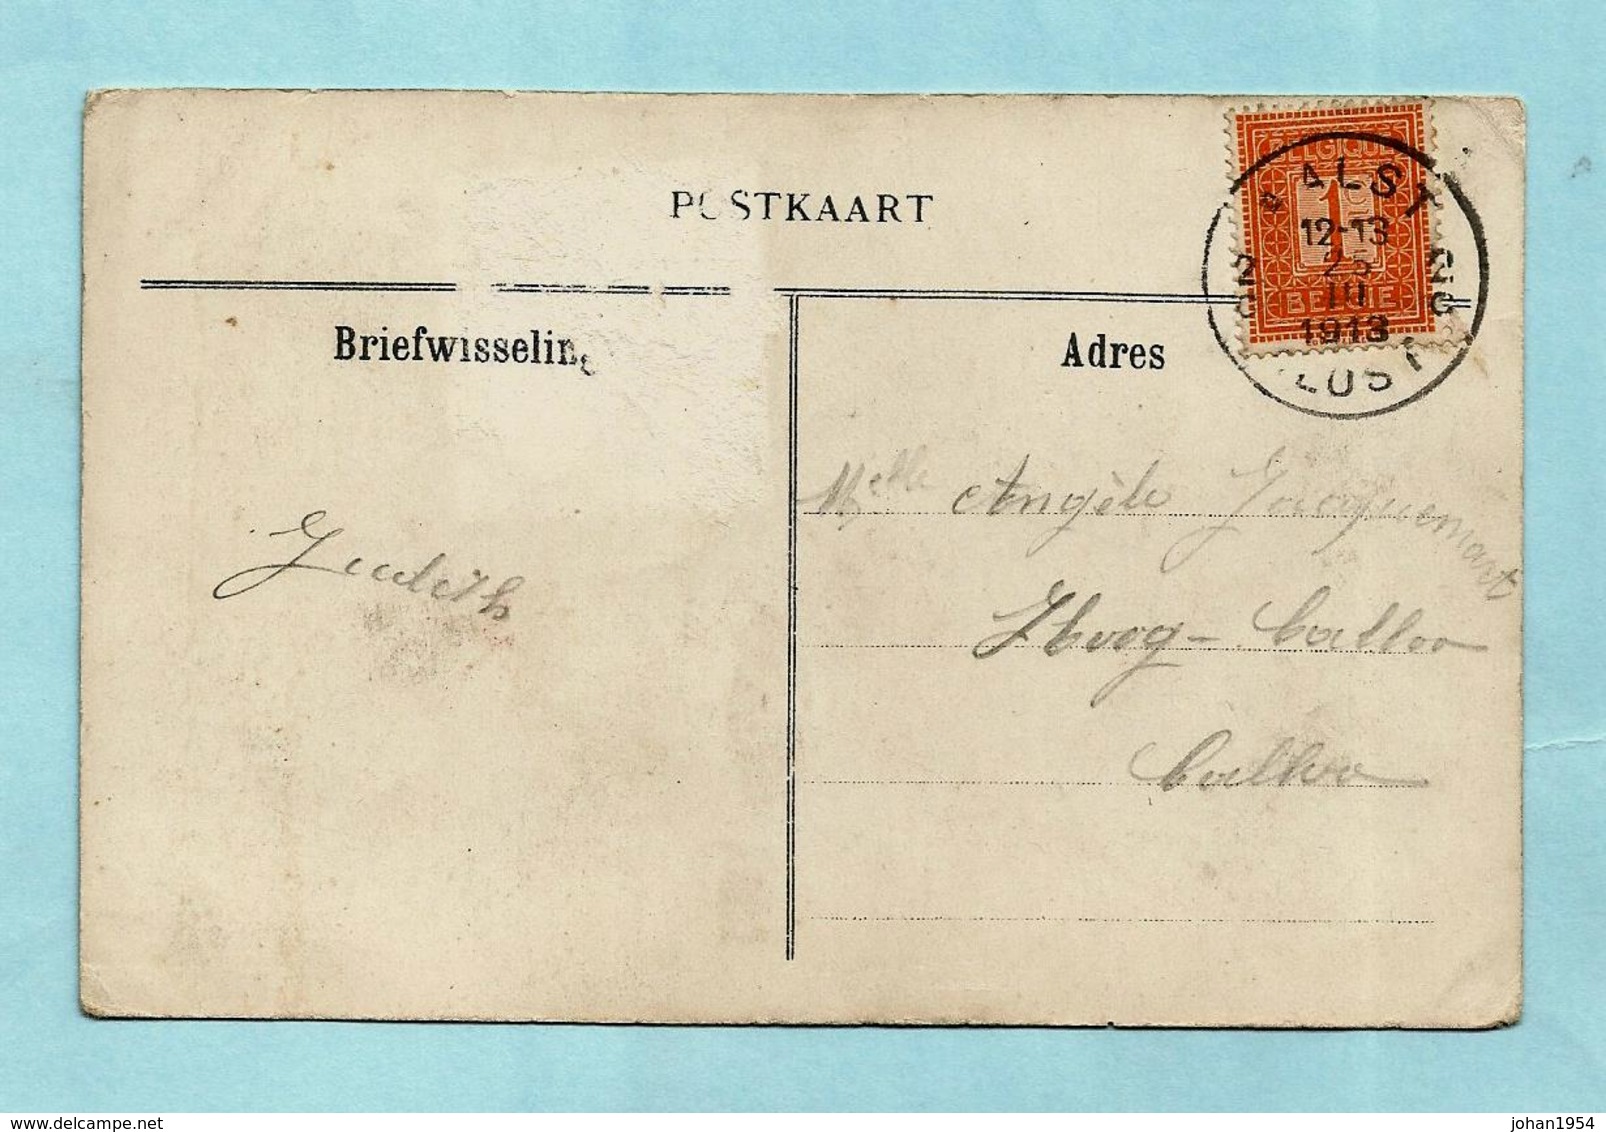 POSTKAART
Briefwisseling
Adres
BELGIQUE
1c
BELGIE
AALST
12-13
25
10
1913
2C 2C
ALOST
Judith
Melle Angèle Jacquemart
Hoog-Calloo
Calloo
delcampe.net
johan1954